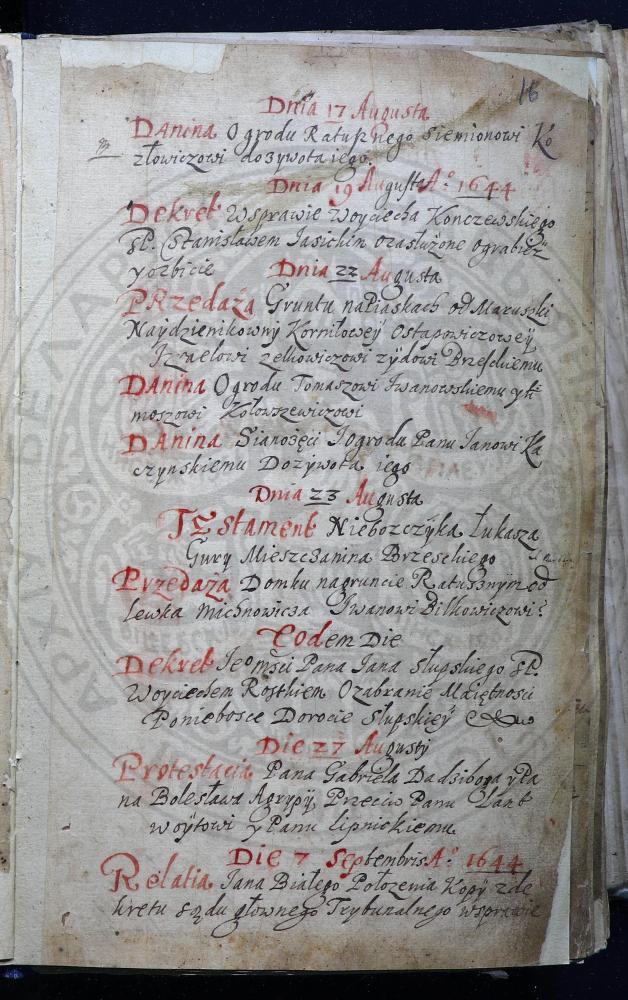 16
Dnia 17 Augusta
Danina Ogrodu Ratusznego Siemionowi Ko
złowiczowi dozywota iego.
Dnia 19 Augusta A° 1644
Dekret Wsprawie Woyciecha Konczewskiego
Sp. Stanisławem Jasickim ozasłużone ograbież
yozbicie Dnia 22 Augusta
Przedaża Gruntu napiaskach od Maruszki
Naydzienkowny Korniłowey Ostapowiczowey
Izraelowi Zelkowiczowi zydowi Brzeskiemu
Danina Ogrodu Tomaszowi Iwanowskiemu yti
moszowi Kołowszewiczowi
Danina Sianożęci Iogrodu Panu Janowi Ka
czynskiemu Dożywota iego
Dnia 23 Augusta
Testament Nieboszczyka Łukasza
Gury Mieszczanina Brzeskiego
Przedaża Domku nagruncie Ratusznym od
Lewka Michnowicza Iwanowi Bilkowiczowi
Eodem Die
Dekret Jeomści Pana Jana Słupskiego sp.
Woyciechem Rostkiem Ozabranie Maiętnosci
Poniebosce Dorocie Słupskiey
Die 27 Augusty
Protestacia Pana Gabriela Dadziboga yPa
na Bolesława Agrypy, Przeciw Panu Lant
woytowi yPanu Lipnickiemu
Die 7 Septembris A° 1644
Relatia Jana Białego Położenia Kopÿ zde
kretu sądu głownego Trybunalnego wsprawie